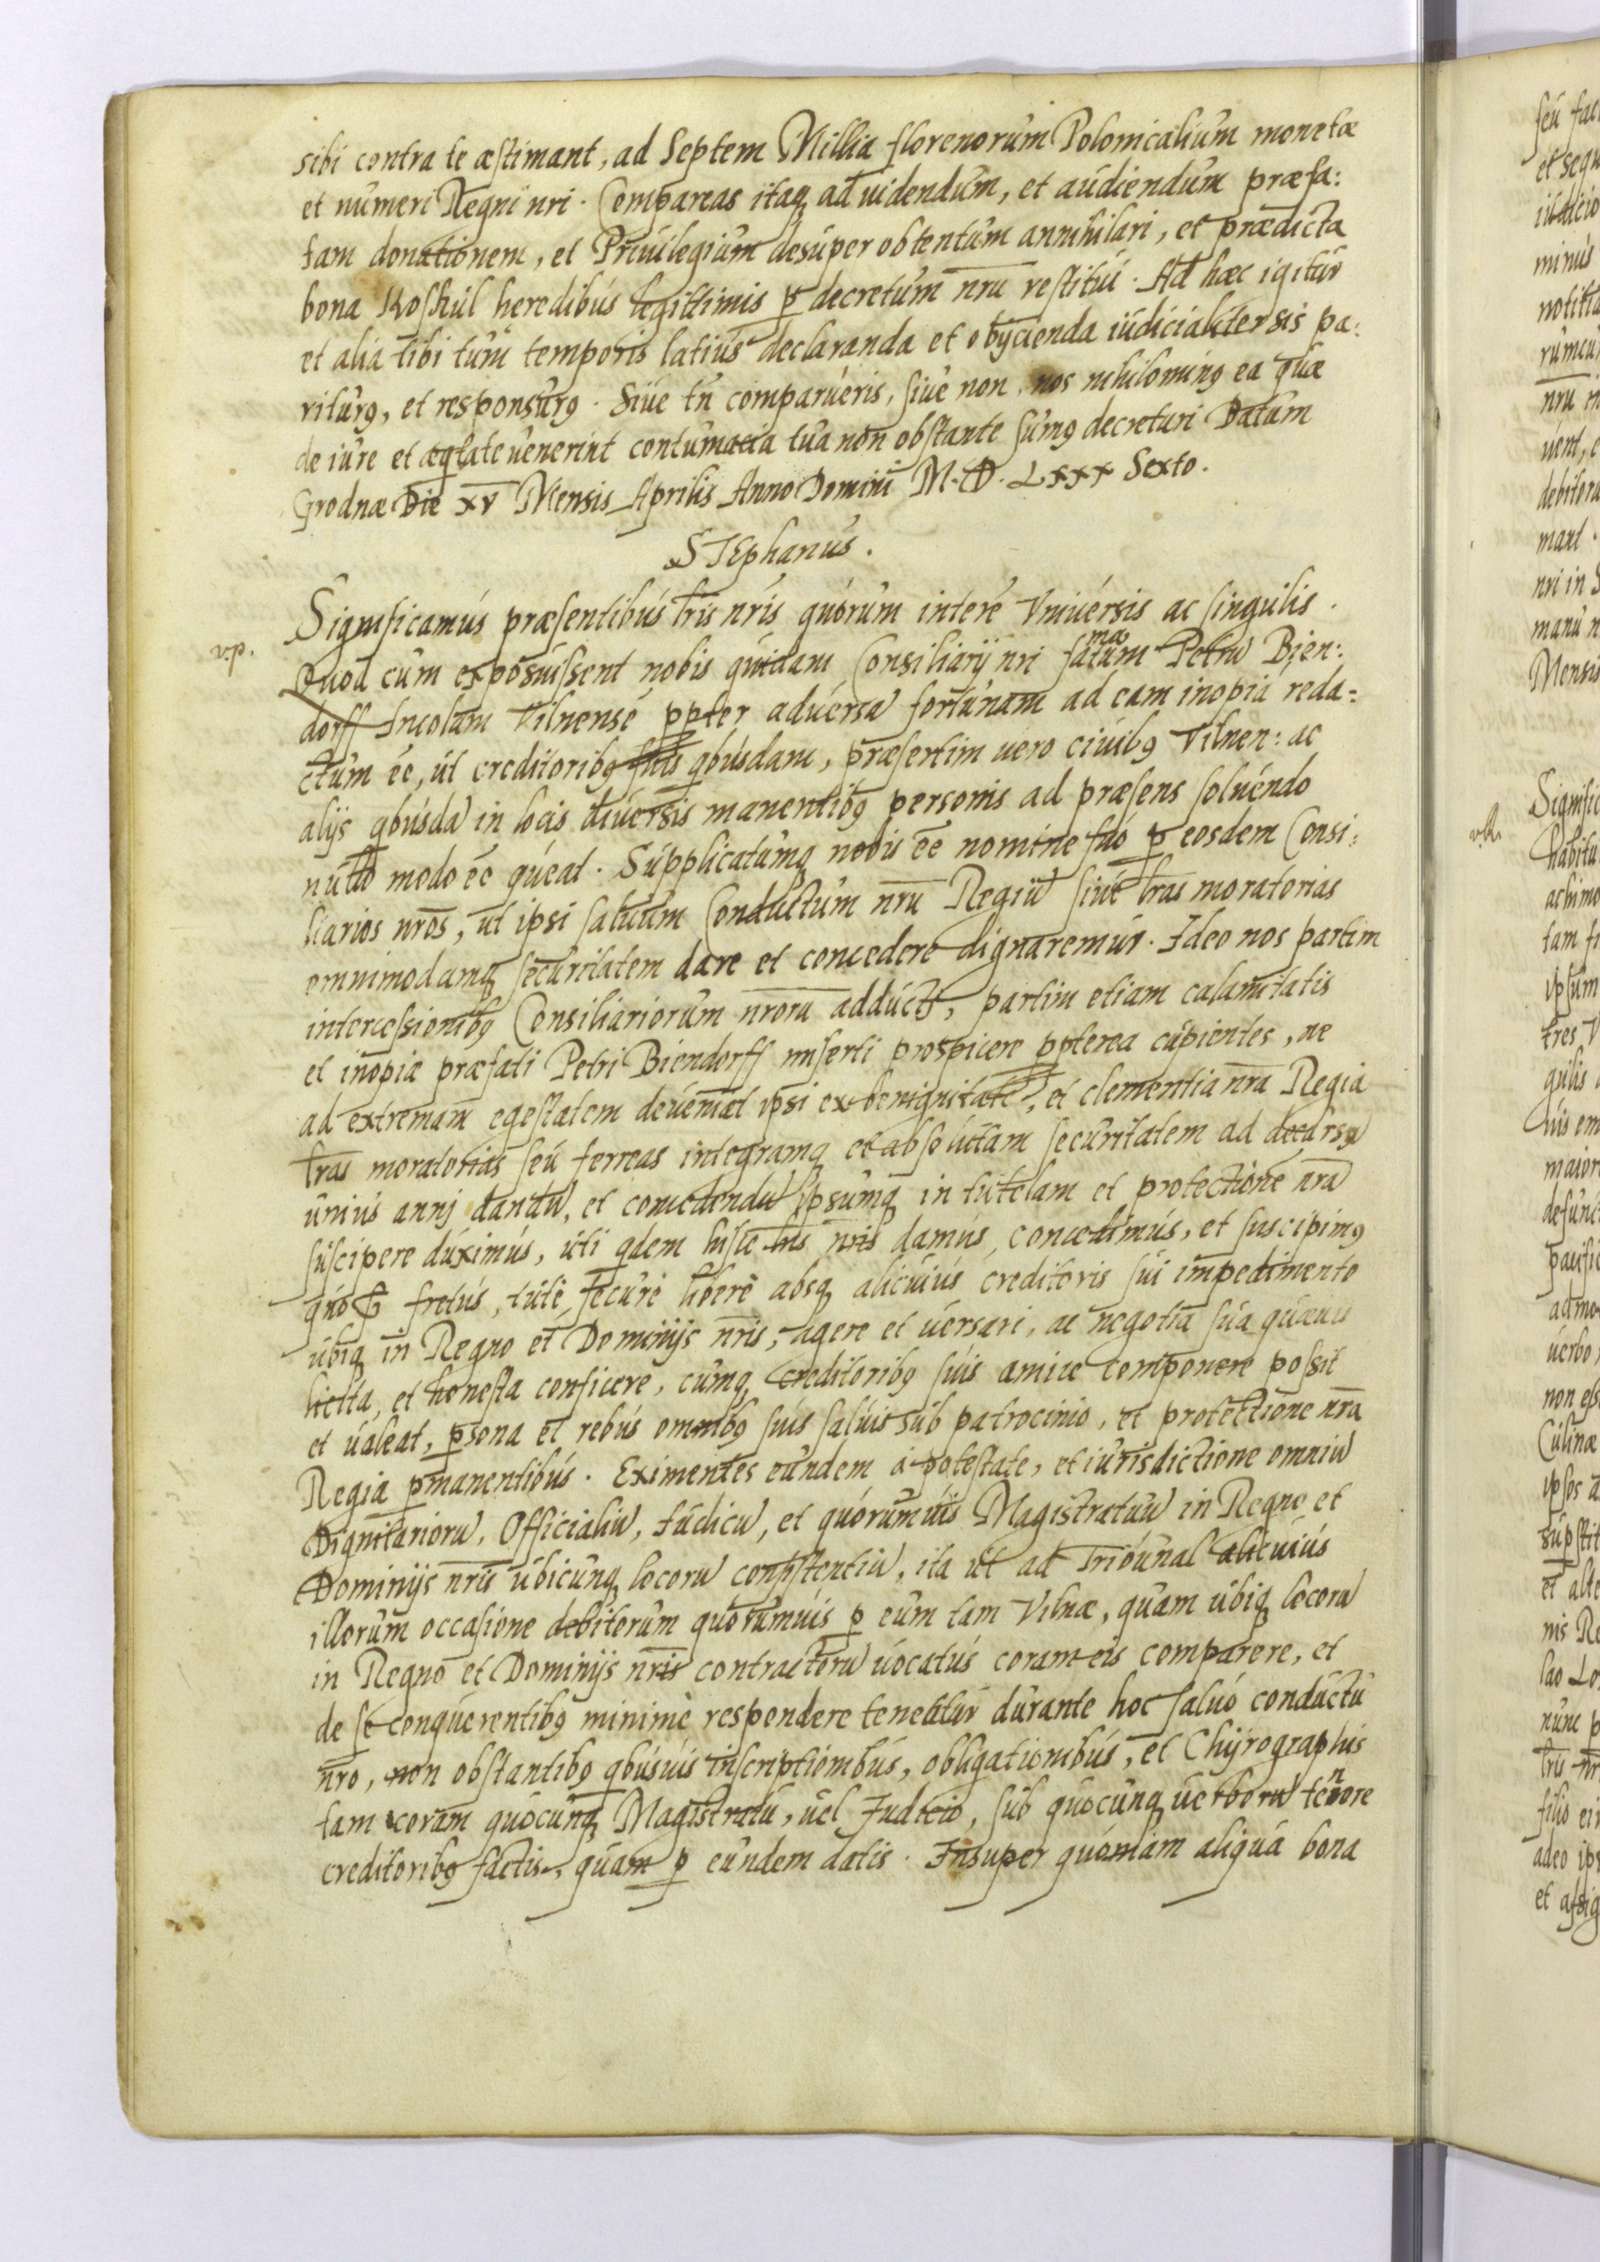 sibi contra te æstimant, ad Septem Millia florenorum Polonicalium monetæ
et numeri Regni nri. Compareas itaq ad uidendum, et audiendum præfa:
tam donationem, et Priuilegium desuper obtentum annihilari, et prædicta
bona Koskul heredibus legittimis p decretum nrū restitui. Ad hæc igitur
et alia tibi tum temporis latius declaranda et obijcienda iudicialiter sis pa:
riturg, et responsurg. Siue tn̄ comparueris, siue non, nos nihiloming ea quæ
de iure et æqtate uenerint contumatia tua non obstante sumg decreturi Datum
Grodnæ Die XV Mensis Aprilis Anno Domini M.D.LXXX Sexto.
STEphanus.
Significamus præsentibus lr̄is nr̄is quorum interē Vniuersis ac singulis.
v.p.
Quod cum exposuissent nobis quidam Consiliarij nri famatum Petrū Bien:
dorff Incolam Vilnensē ppter aduersā fortunam ad eam inopiā reda=
ctum ēē, ut creditoribg suis qbusdam, præsertim uero ciuibg Vilnen: ac
alijs qbusdā in locis diuersis manentibg personis ad præsens soluendo
nullo modo ēē queat. Supplicatumq nobis ēē nomine suo p eosdem Consi:
liarios nros, ut ipsi saluum Conductum nrū Regiū siue lr̄as moratorias
omnimodamq securitatem dare et concedere dignaremur. Ideo nos partim
intercessionibg Consiliariorum nrorū adducti, partim etiam calamitatis
et inopiæ præfati Petri Biendorff miserti prospicere ppterea cupientes, ne
ad extremam egestatem deueniat ipsi ex benignitate, et clementia nrā Regia
lr̄as moratorias seu ferreas integramq et absolutam securitatem ad decursū
unius annj dandū, et concedendū Ipsumq in tutelam et protectionē nrā
suscipere duximus, uti qdem hisce lr̄is nr̄is damus, concedimus, et suscipimg
quo fretus, tutè, securè liberè absq alicuius creditoris sui impedimento
ubiq in Regno et Dominijs nr̄is, agere et uersari, ac negotia sua quæuis
licita, et honesta conficere, cumq creditoribg suis amice componere possit
et ualeat, psona et rebus omnibg suis saluis sub patrocinio, et protectione nrā
Regia pmanentibus. Eximentes eundem a potestate, et iurisdictione omniū
Dignitariorū, Officialiū, Iudicū, et quorumuis Magistratuū in Regno et
Dominijs nr̄is ubicunq locorū consistentiū, ita ut ad Tribunal alicuius
illorum occasione debitorum quorumuis p eum tam Vilnæ, quam ubiq locorū
in Regno et Dominijs nr̄is contractorū uocatus coram eis comparere, et
de se conquerentibg minimè respondere teneatur durante hoc saluo conductu
nrō, non obstantibg qbusuis inscriptionibus, obligationibus, et Chyrographis
tam coram quocunq Magistratu, uel Iudicio, sub quocunq uerborū tenore
creditoribg factis, quam p eundem datis. Insuper quoniam aliqua bona